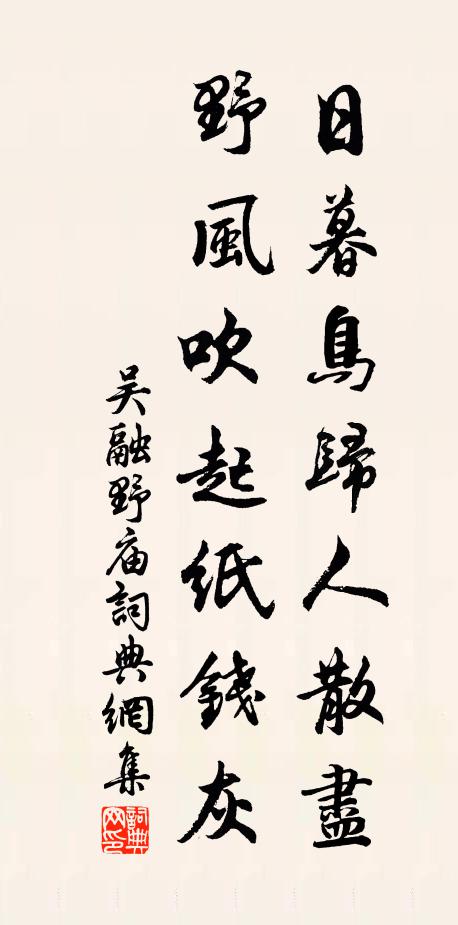 日暮鳥歸人散盡
野風吹起紙錢灰
吴融野庙詞典網集
詞典
网印